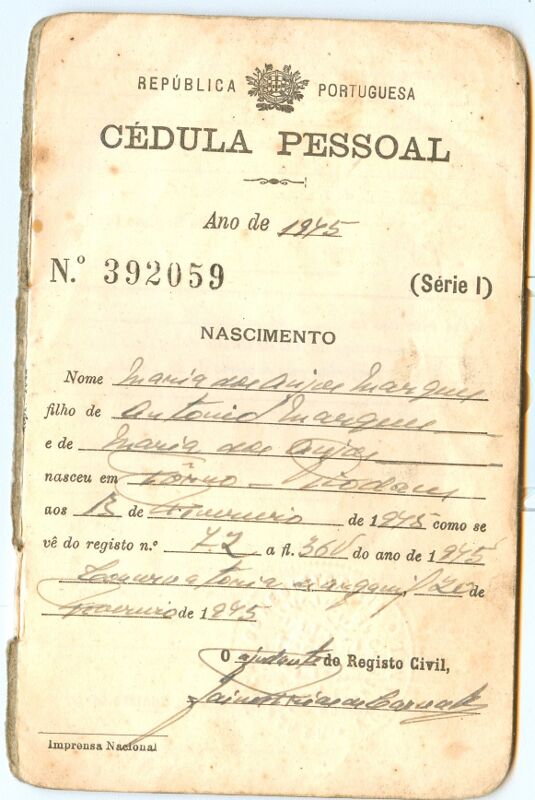 REPÚBLICA PORTUGUESA
CÉDULA PESSOAL
Ano de 1945
N.º 392059 (Série I)
NASCIMENTO
Nome Maria dos Anjos Marques
filho de Antonio Marques
e de Maria dos Anjos
nasceu em Piodam
aos 13 de Fevereiro de 1945 como se
vê do registo n.º 72 a fl. 36V do ano de 1945
Conservatoria Arganil, 26 de
Fevereiro de 1945
O ajudante do Registo Civil,
Jaime Dias de
Imprensa Nacional